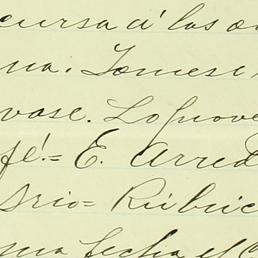 cursa á las
na. Tomese
vase. Lo prove
fé.= E. Arred
Srio= Rúbric
ma fecha el C